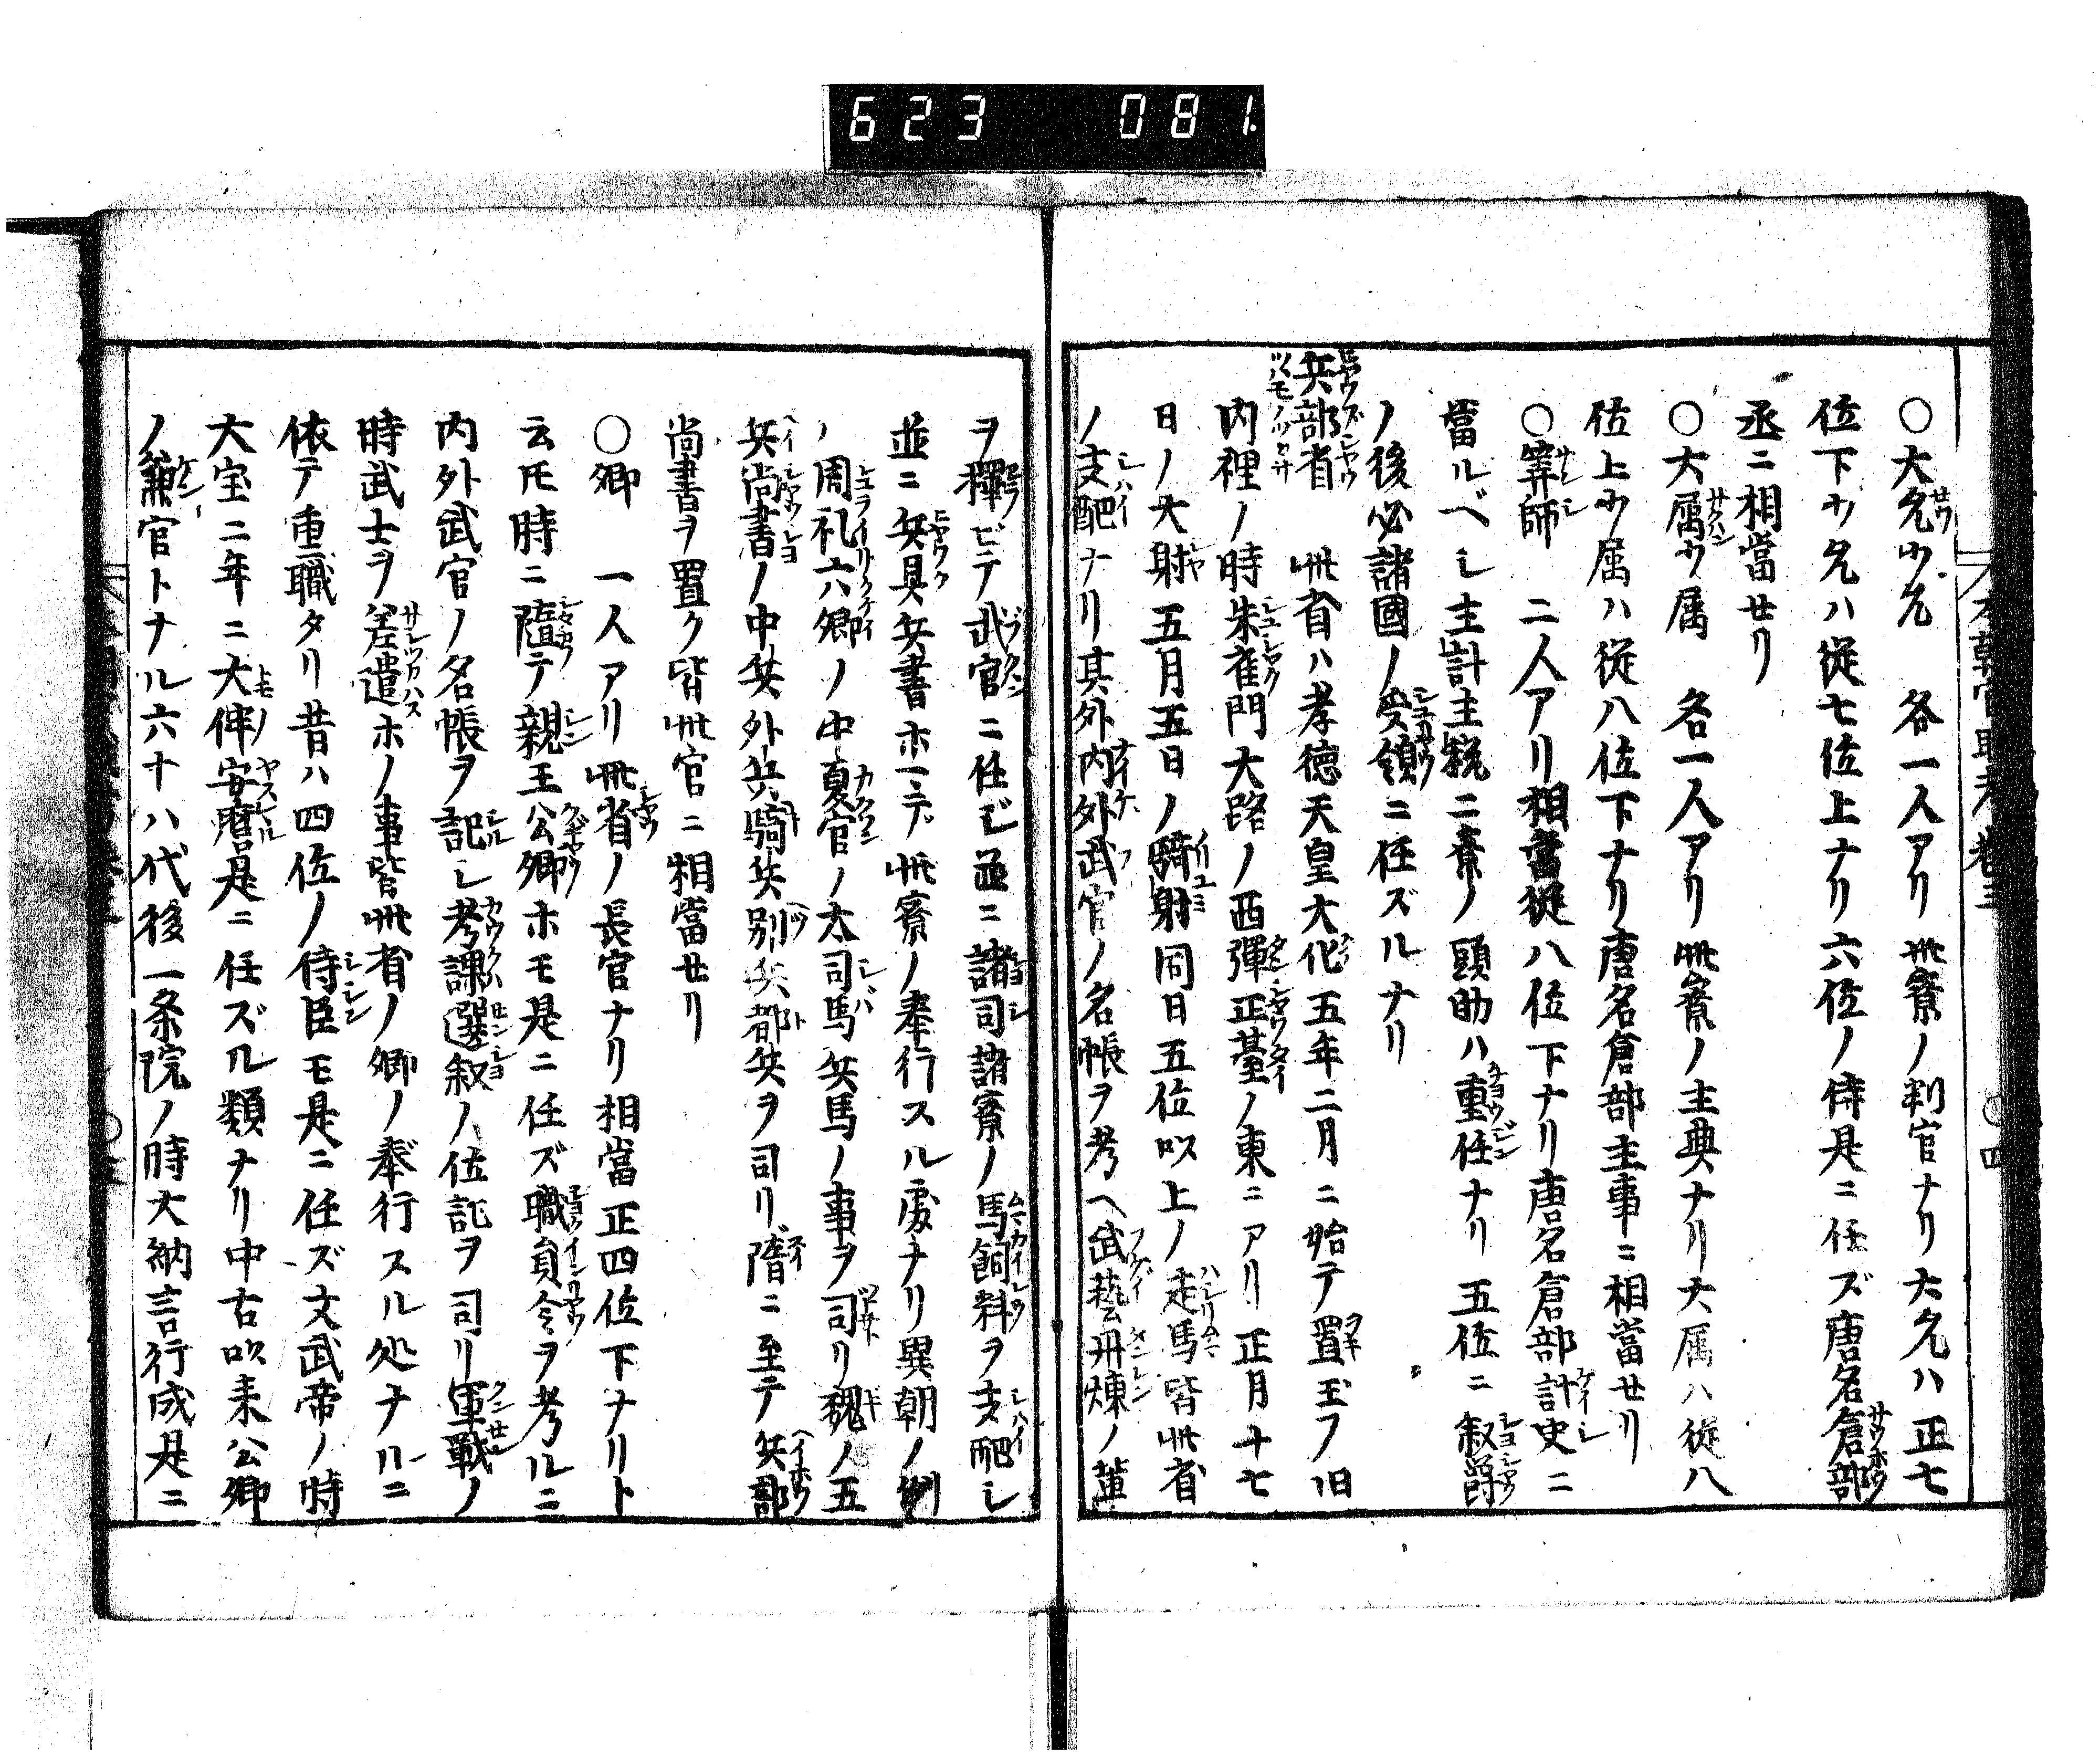 623 081.
○大允少允 各一人アリ此寮ノ判官ナリ大允ハ正七
位下少允ハ従七位上ナリ六位ノ侍是ニ任ズ唐名倉部
丞ニ相當せリ
○大属少属 各一人アリ此寮ノ主典ナリ大属ハ従八
位上少属ハ従八位下ナリ唐名倉部主事ニ相當せリ
○筭師 二人アリ相當従八位下ナリ唐名倉部計史ニ
當ルベシ主計主税二寮ノ頭助ハ重任ナリ五位ニ叙爵
ノ後必諸國ノ受領ニ任ズルナリ
兵部省 此省ハ孝徳天皇大化五年二月ニ始テ置玉フ旧
内裡ノ時朱雀門大路ノ西彈正臺ノ東ニアリ正月十七
日ノ大射五月五日ノ騎射同日五位以上ノ走馬皆此省
ノ支配ナリ其外内外武官ノ名帳ヲ考ヘ武藝丹煉ノ輩
ヲ擇ビテ武官ニ任じ並ニ諸司諸寮ノ馬飼料ヲ支配シ
並ニ兵具兵書ホマデ此寮ノ奉行スル處ナリ異朝ノ例
ノ周礼六卿ノ中夏官ノ太司馬兵馬ノ事ヲ司リ魏ノ五
兵尚書ノ中兵外兵騎兵別兵都兵ヲ司リ隋ニ至テ兵部
尚書ヲ置ク皆此官ニ相當せリ
○卿 一人アリ此省ノ長官ナリ相當正四位下ナリト
云𪜈時ニ隨テ親王公卿ホモ是ニ任ズ職員令ヲ考ルニ
内外武官ノ名帳ヲ記シ考課選叙ノ位記ヲ司リ軍戦ノ
時武士ヲ差遣ホノ事皆此省ノ卿ノ奉行スル処ナルニ
依テ重職タリ昔ハ四位ノ侍臣モ是ニ任ズ文武帝ノ時
大宝二年ニ大伴安麿是ニ任ズル類ナリ中古以来公卿
ノ兼官トナル六十八代後一条院ノ時大納言行成是ニ